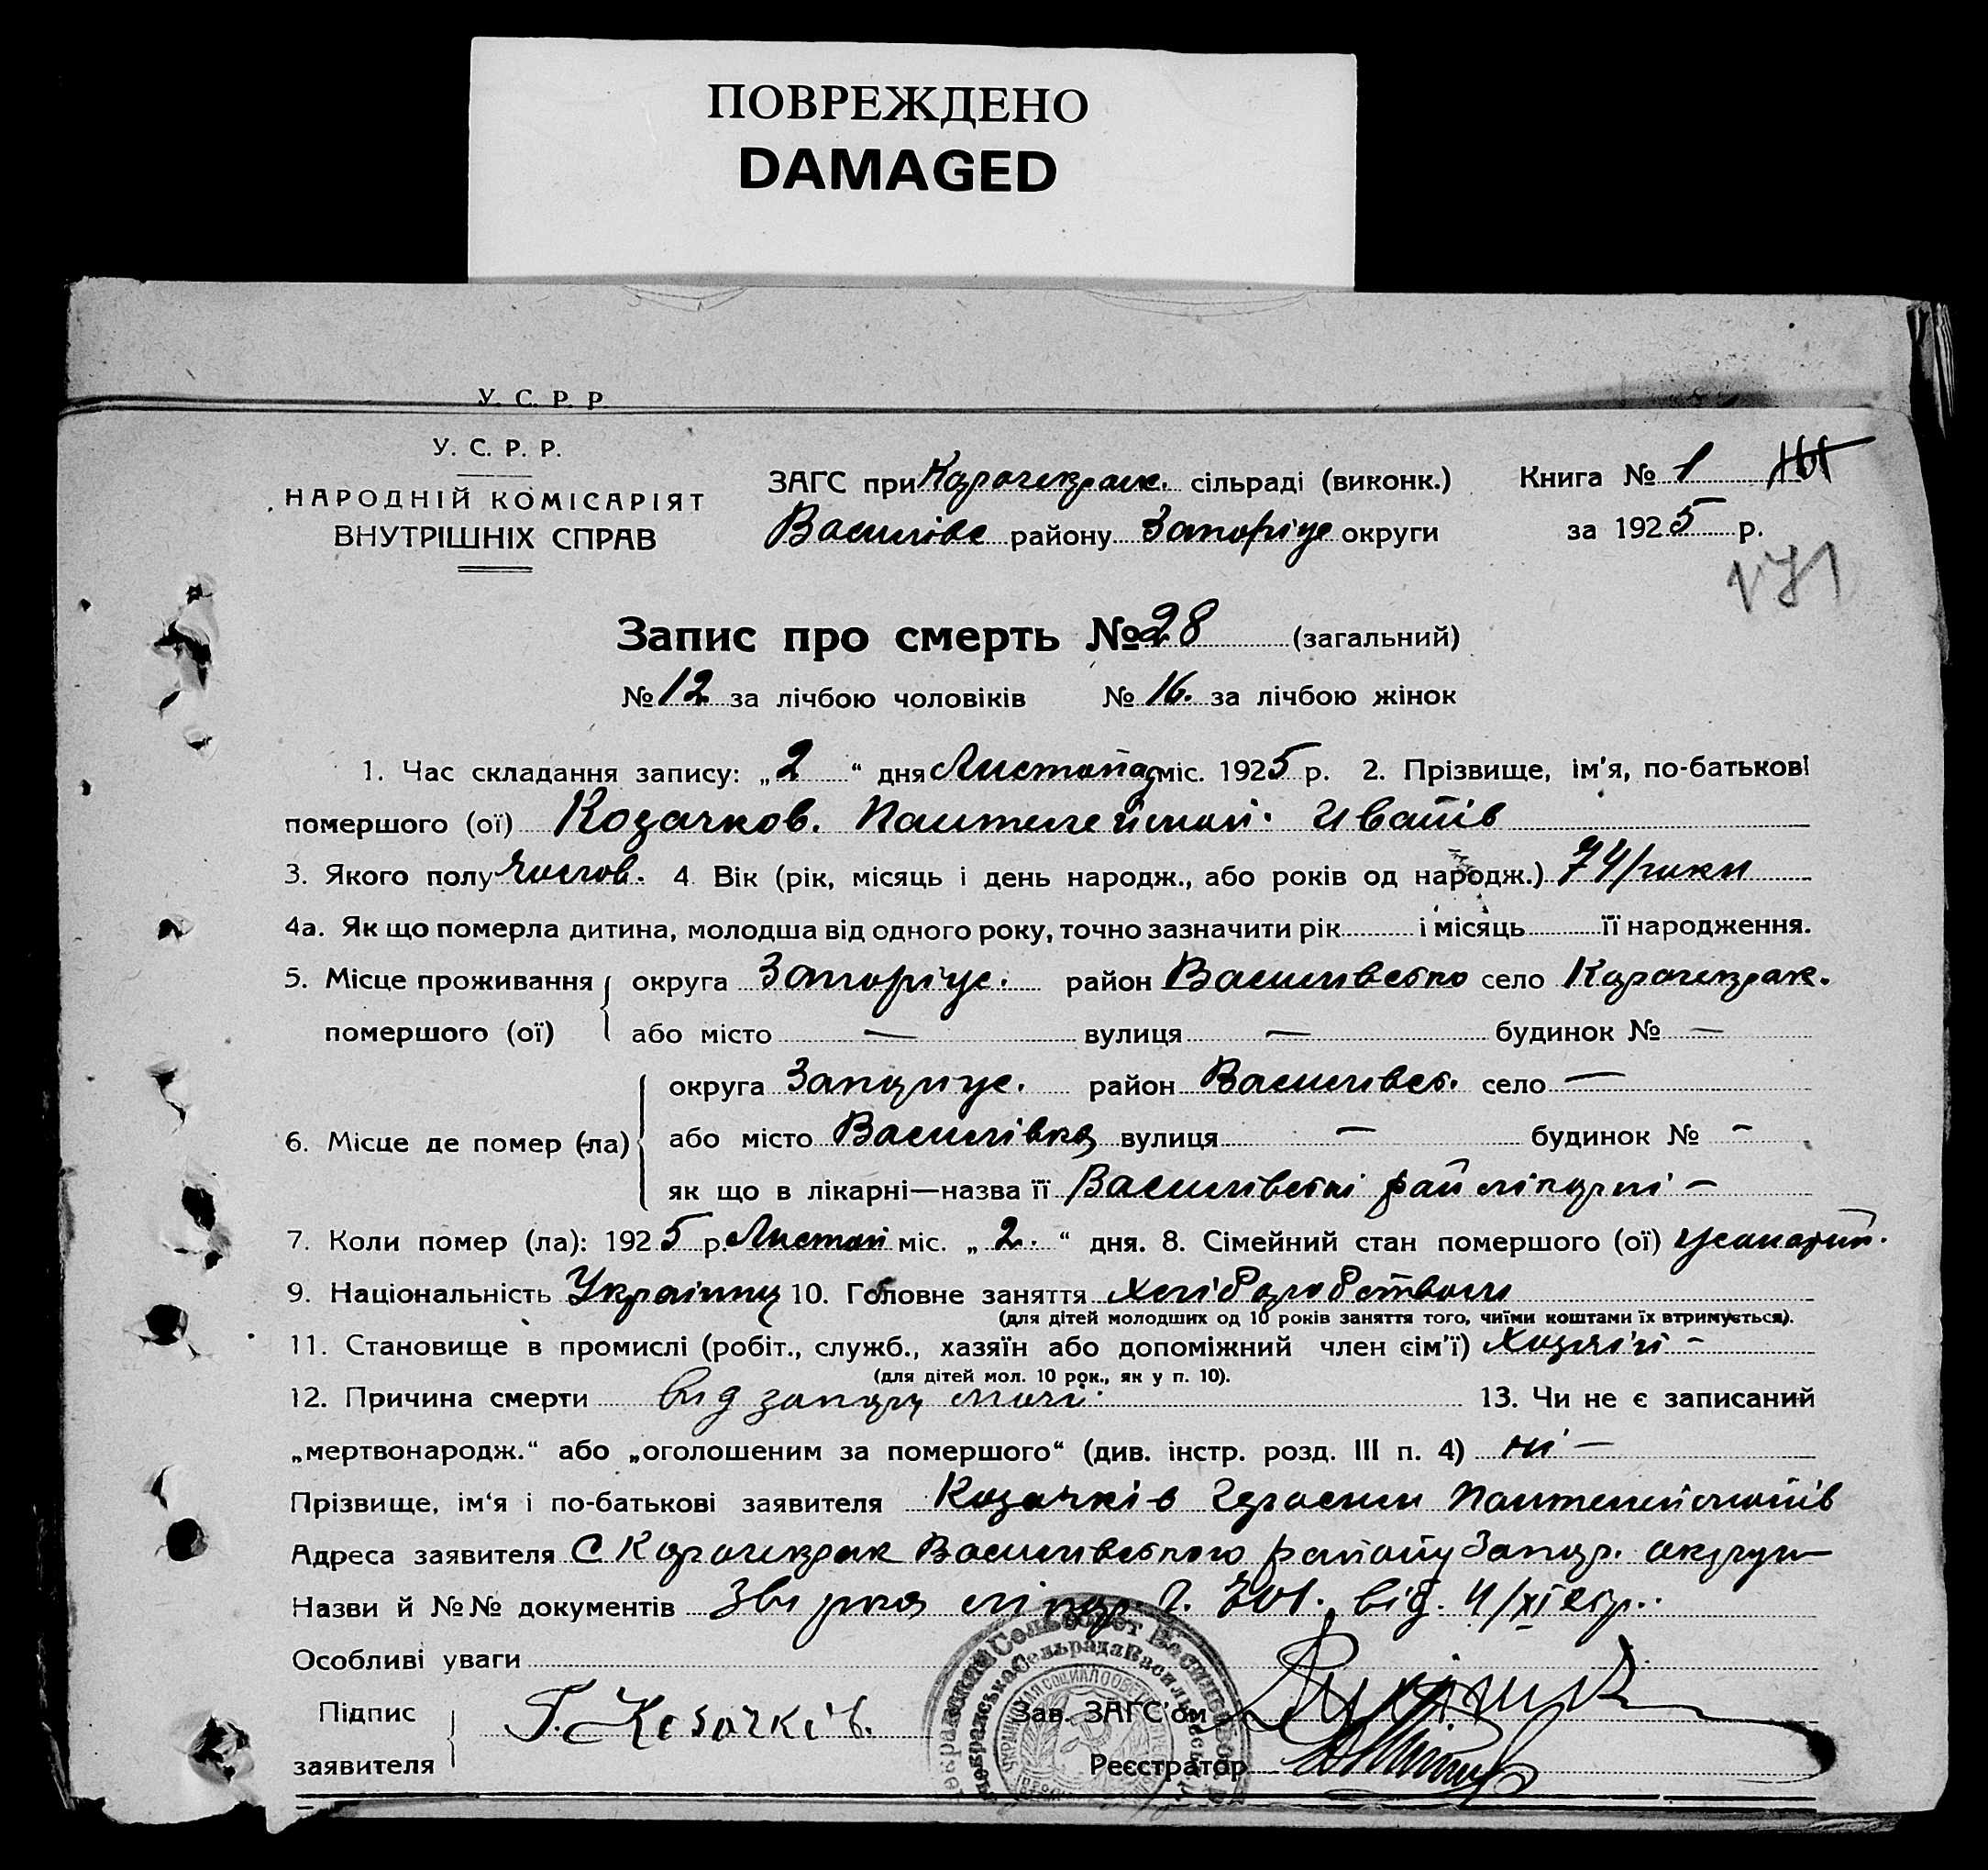 ПОВРЕЖДЕНО
DAMAGED
У. С. Р. Р
У. С. Р. Р.
НАРОДНІЙ КОМІСАРІЯТ
ВНУТРІШНІХ СПРАВ
ЗАГС при Карачекрак. сільраді (виконк.)
Василівс району Запоріж округи
Книга № 1
за 1925 р.
171
Запис про смерть № 28 (загальний)
№ 12 за лічбою чоловіків № 16. за лічбою жінок
1. Час складання запису: „2“ дня Листопад міс. 1925 р. 2. Прізвище, ім'я, по-батькові
помершого (ої) Козачков. Пантелеймон. Иванів
3. Якого полу Чолов. 4 Вік (рік, місяць і день народж., або років од народж.) 74/роки
4а. Як що померла дитина, молодша від одного року, точно зазначити рік і місяць її народження.
5. Місце проживання помершого (ої) округа Запоріж. район Василівсько село Карачекрак.
або місто — вулиця — будинок № —
6. Місце де помер (-ла) округа Запоріж. район Василівсь. село —
або місто Василівка вулиця — будинок № -
як що в лікарні—назва її Василівські рай лікарні —
7. Коли помер (ла): 1925 р. Листоп міс. „2.“ дня. 8. Сімейний стан помершого (ої)
9. Національність Украінец 10. Головне заняття хліборобством
(для дітей молодших од 10 років заняття того, чиїми коштами їх втримується).
11. Становище в промислі (робіт., служб., хазяїн або допоміжний член сім'ї) Хозяїн —
(для дітей мол. 10 рок., як у п. 10).
12. Причина смерти 13. Чи не є записаний
„мертвонародж.“ або „оголошеним за помершого“ (див. інстр. розд. III п. 4) ні —
Прізвище, ім'я і по-батькові заявителя Козачків Герасим Пантелеймонів
Адреса заявителя С Карачекрак Василівського району Запор. округи
Назви й №№ документів від. 4/XI
Особливі уваги
Підпис заявителя Г. Козачків.
Зав. ЗАГС'ом
Реєстратор